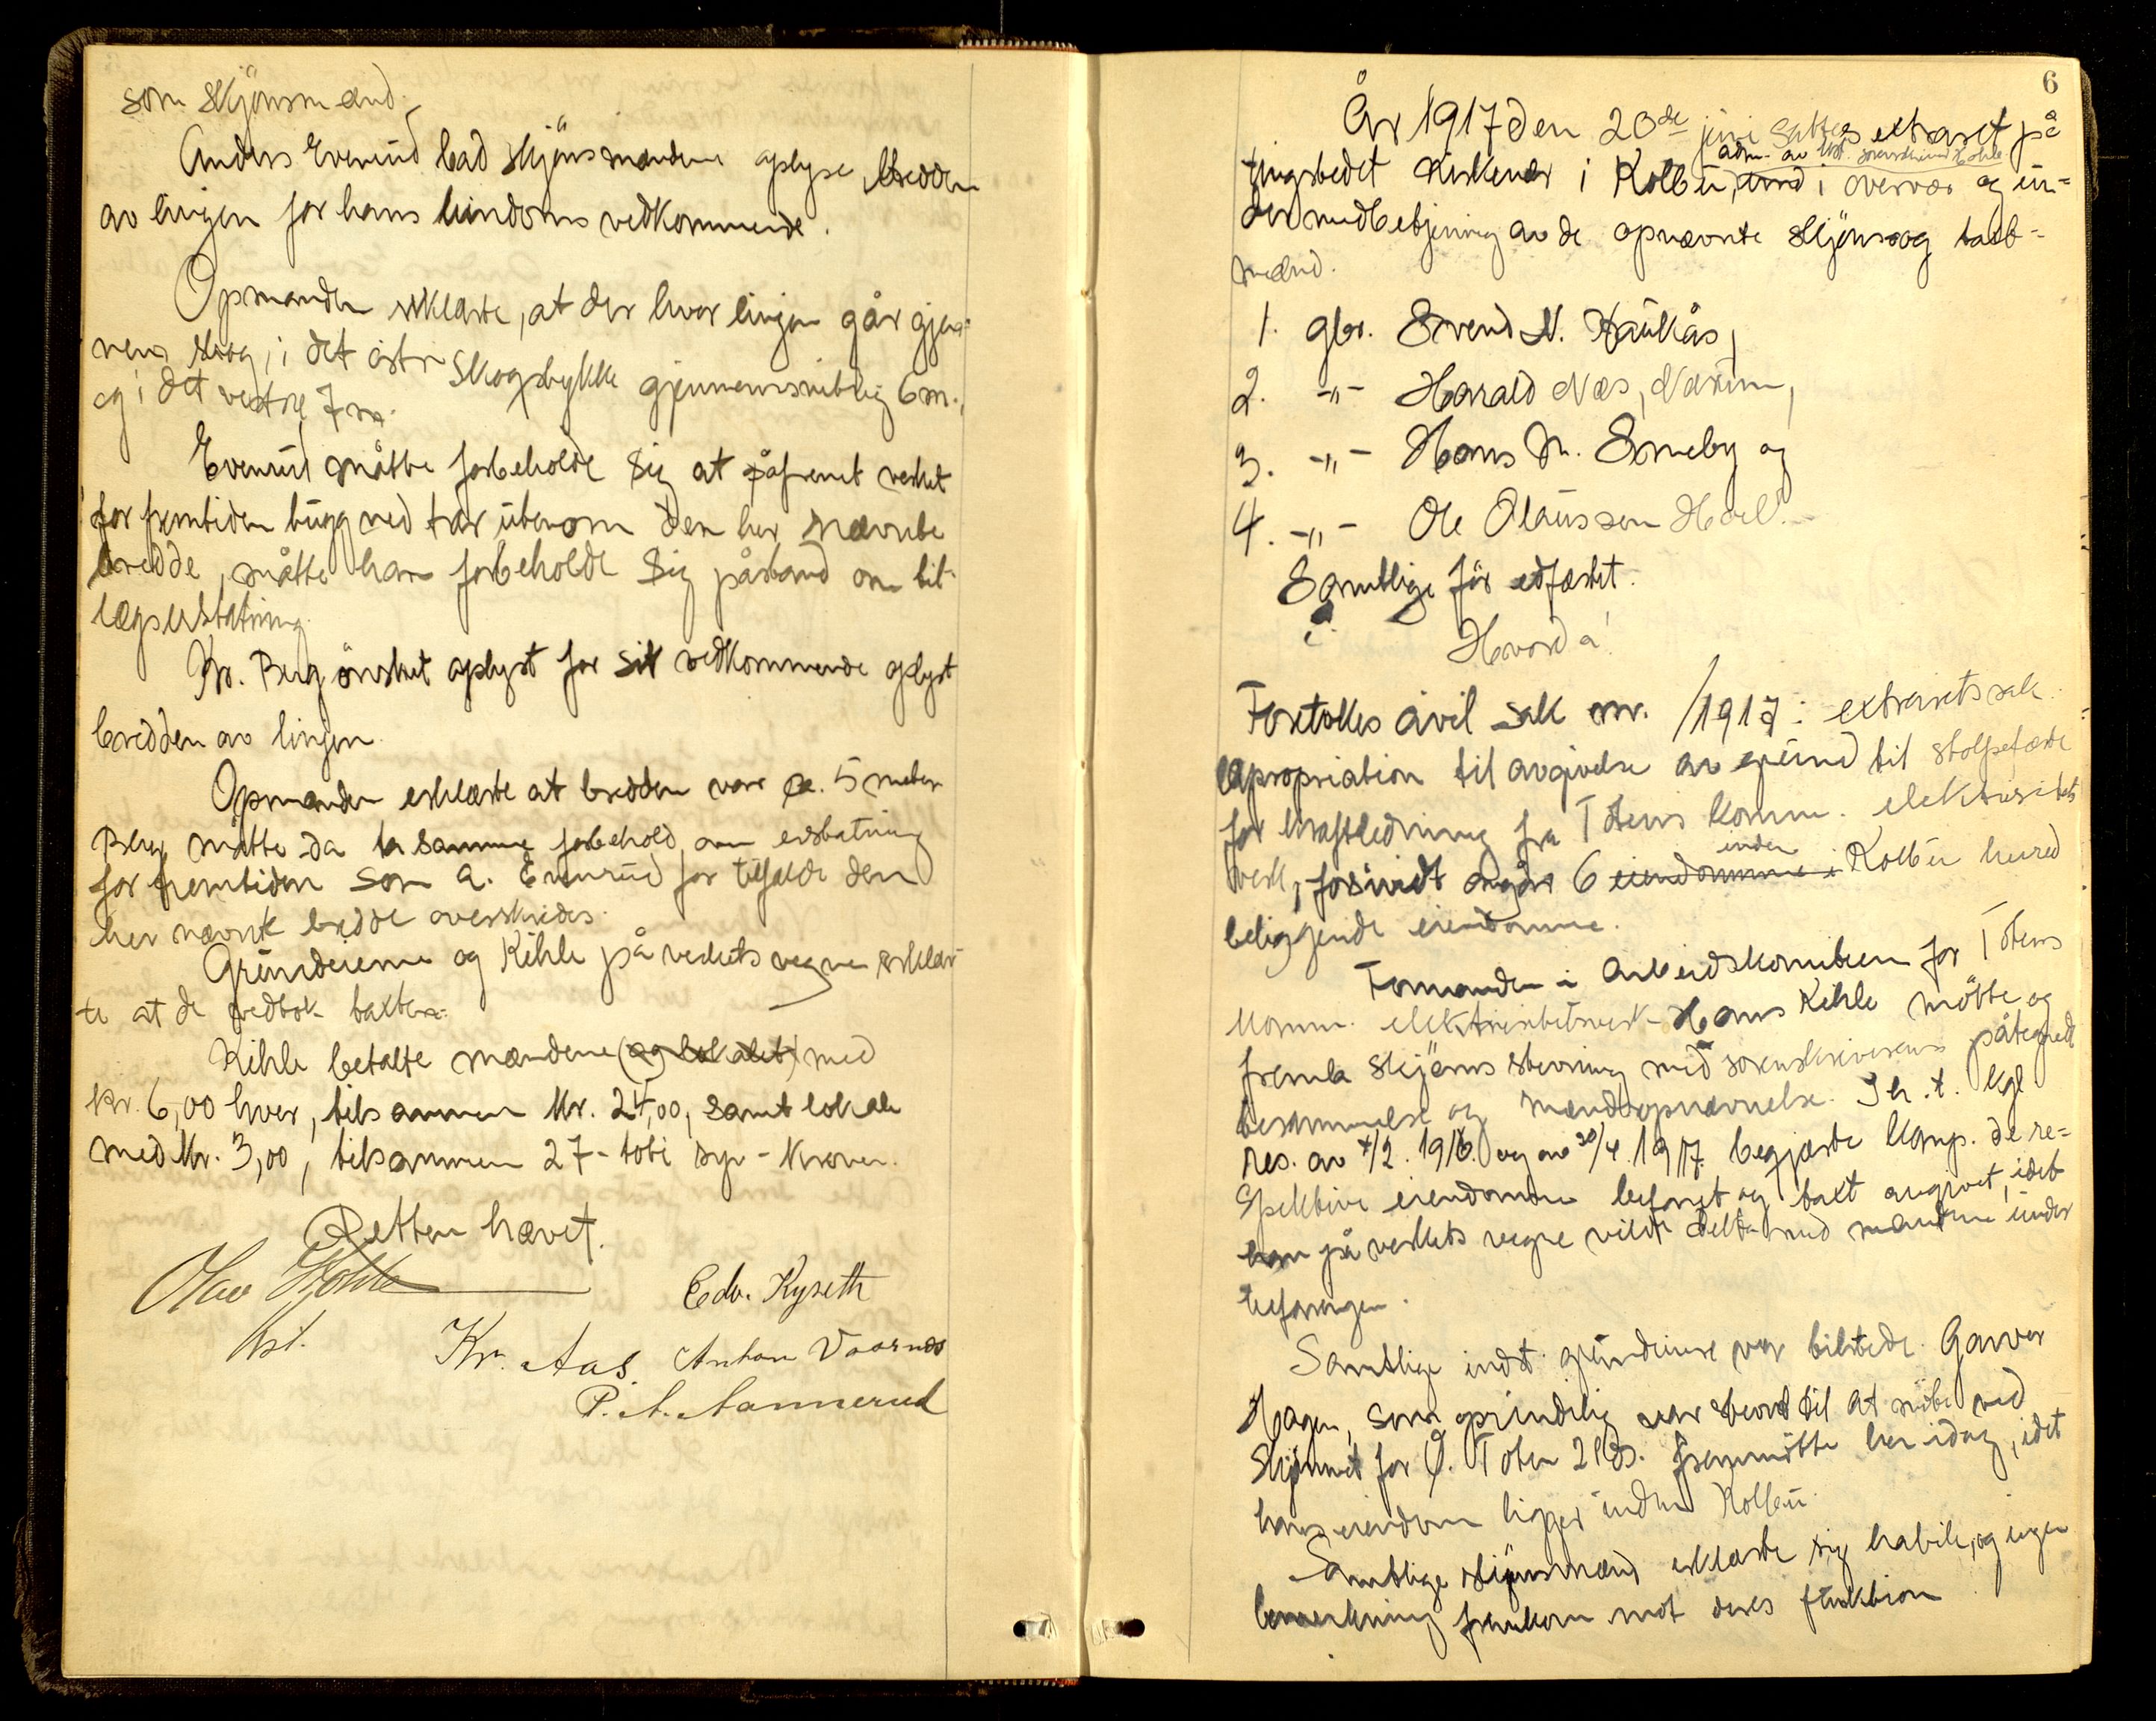 som skjønsmænd.
Anders Evenrud bad skjønsmændene oplyse bredden
av linjen for hans eiendoms vedkommende.
Opmanden erklærte, at der hvor linjen går gjen-
nem skog, i det østre skogstykke gjennemsnitlig 6 m.,
og i det vestre 7 m.
Evenrud måtte forbeholde sig at såfremt verket
for fremtiden hugg ned trær utenom den her nævnte
bredde, måtte han forbeholde sig påstand om til-
lægserstatning.
Kr. Berg ønsket oplyst for sit vedkommende oplyst
bredden av linjen.
Opmanden erklærte at bredden var ca. 5 meter
Berg måtte da ta samme forbehold om erstatning
for fremtiden som A. Evenrud for tilfælde den
her nævnte bredde overskrides.
Grundeierne og Kihle på verkets vegne erklær-
te at de vedtok taksten.
Kihle betalte mændene (og lokalet) med
kr. 6,00 hver, tilsammen kr. 24,00, samt lokale
med kr. 3,00, tilsammen 27 - toti syv - kroner.
Retten hævet.
Olav Hohle
kst.
Edv. Kyseth
Kr. Aas. Anton Vaarnæs
P. A. Aannerud
6
År 1917 den 20de juni sattes extraret på
adm. av kst. sorenskriver Hohle
tingstedet Kirkenær i Kolbu, und i overvær og un-
der medbetjening av de opnævnte skjøns og takst-
mænd.
1. gbr. Svend N. Haukås,
2. -"- Harald Næs, Narum,
3. -"- Hans M. Emeby og
4. -"- Ole Olaussen Hoel.
Samtlige før edfæstet.
Hvorda!
Foretokes civil sak nr. /1917: extraretssak.
Expropriation til avgivelse av grund til stolpefæste
for kraftledning fra Totens komm. elektrisitets
inden
verk, forsåvidt angår 6 eiendomme i Kolbu herred
beliggende eiendomme.
Formanden i arbeidskomiteen for Totens
komm. elektricitetsverk Hans Kihle møtte og
fremla skjønsstevning med sorenskriverens påtegnede
berammelse og mandsopnævnelse. I h. t. kgl
res. av 4/2. 1916. og av 20/4. 1917. begjærte komp. de re-
spektive eiendomme befaret og takst avgivet, idet
han på verkets vegne vilde delta med mændene under
befaringen.
Samtlige indst. grundeiere var tilstede. Garver
Hagen, som oprindelig var stevnt til at møte ved
skjønnet for Ø. Toten 21 ds. fremmøtte her idag, idet
hans eiendom ligger inden Kolbu.
Samtlige skjønsmænd erklærte sig habile, og ingen
bemerkning fremkom mot deres funktion